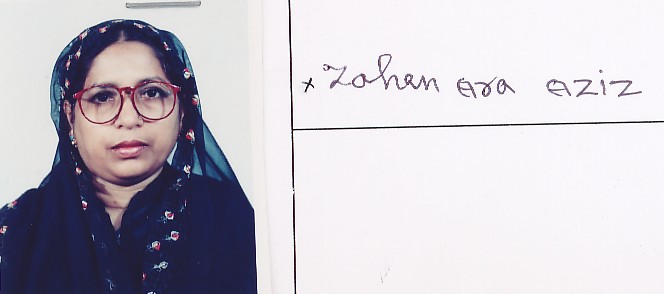 x Zahan Ara Aziz